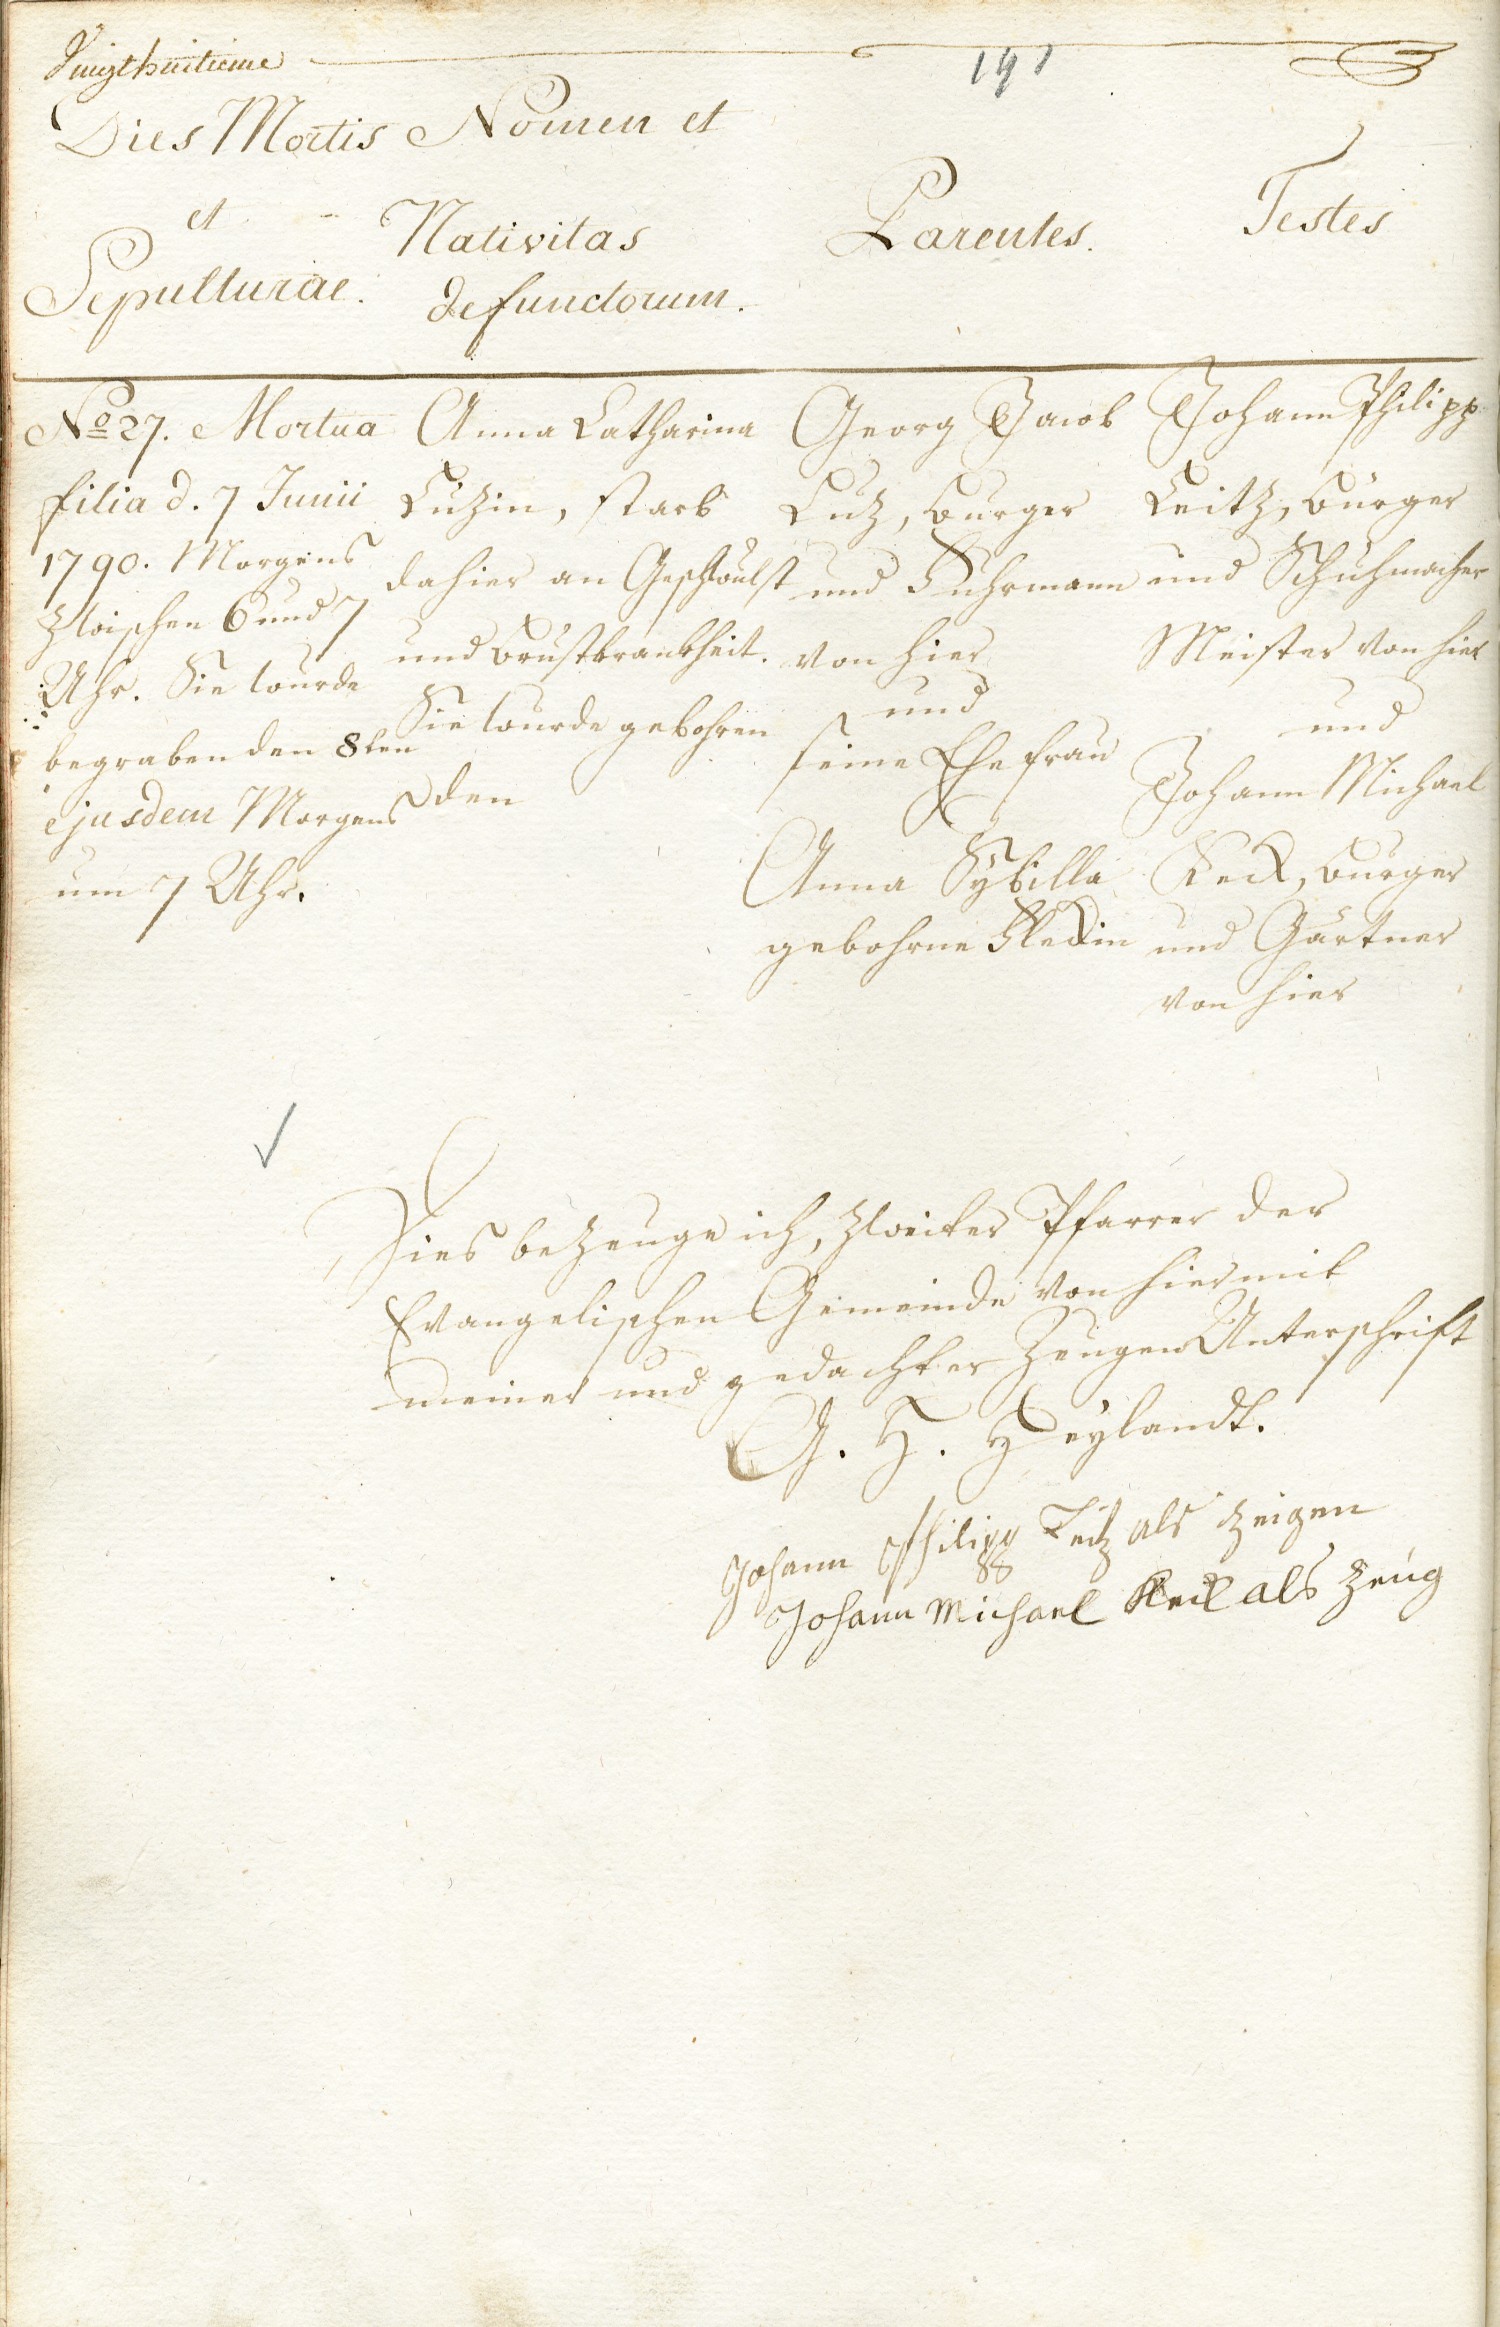 Vingthuitieme
191
Dies Mortis
et
Sepulturae.
Nomen et
Nativitas
defunctorum.
Parentes.
Testes
No 27. Mortua
filia d. 7 Junii
1790. Morgens
zwischen 6 und 7
Uhr. Sie wurde
begraben den 8ten
ejusdem Morgens
um 7 Uhr.
Anna Catharina
Luzin, starb
dahier an Geschwulst
und Brustkrankheit.
Sie wurde gebohren
den
Georg Jacob
Luz, Burger
und Fuhrmann
von hier
und
seine Ehefrau
Anna Sÿbilla
gebohrne
Johann Philipp
Leitz, Bürger
und Schuhmacher
Meister von hier
und
Johann Michael
Keck, Burger
und Gärtner
von hier
Dies bezeuge ich, zweiter Pfarrer der
Evangelischen Gemeinde von hier mit
meiner und gedachter Zeugen Unterschrift
G. H. Heylandt.
Johann Philipp Leitz als zeigen
Johann Michael Keck als zeüg